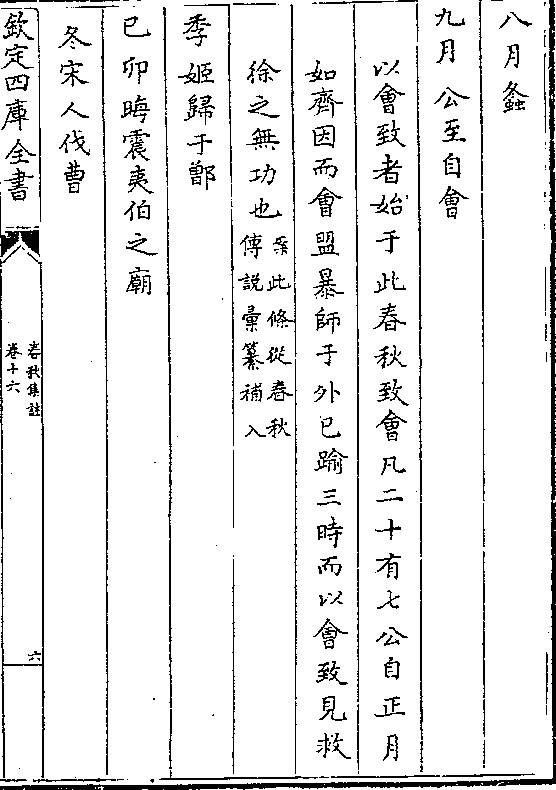 八月螽
九月 公至自會
以會致者始于此春秋致會凡二十有七公自正月
如齊因而會盟暴師于外已踰三時而以會致見救
徐之無功也案此條從春秋
傳說彙纂補入
季姬歸于鄫
己卯晦震夷伯之廟
冬宋人伐曹
欽定四庫全書
春秋集註
卷十六
六